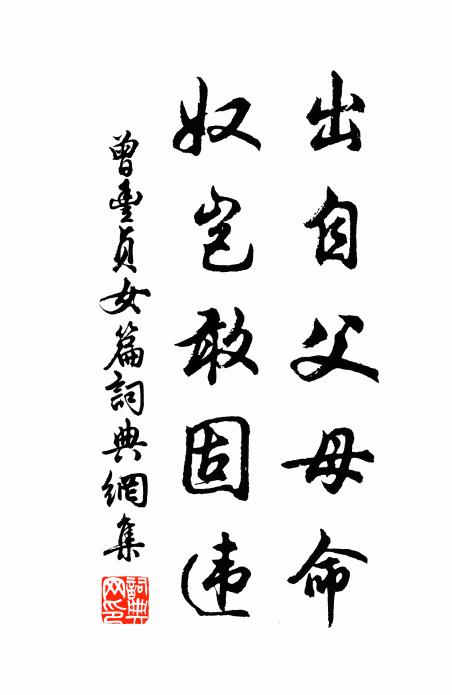 出自父母命
奴岂敢固违
曾豐貞女篇詞典網集
詞典网印